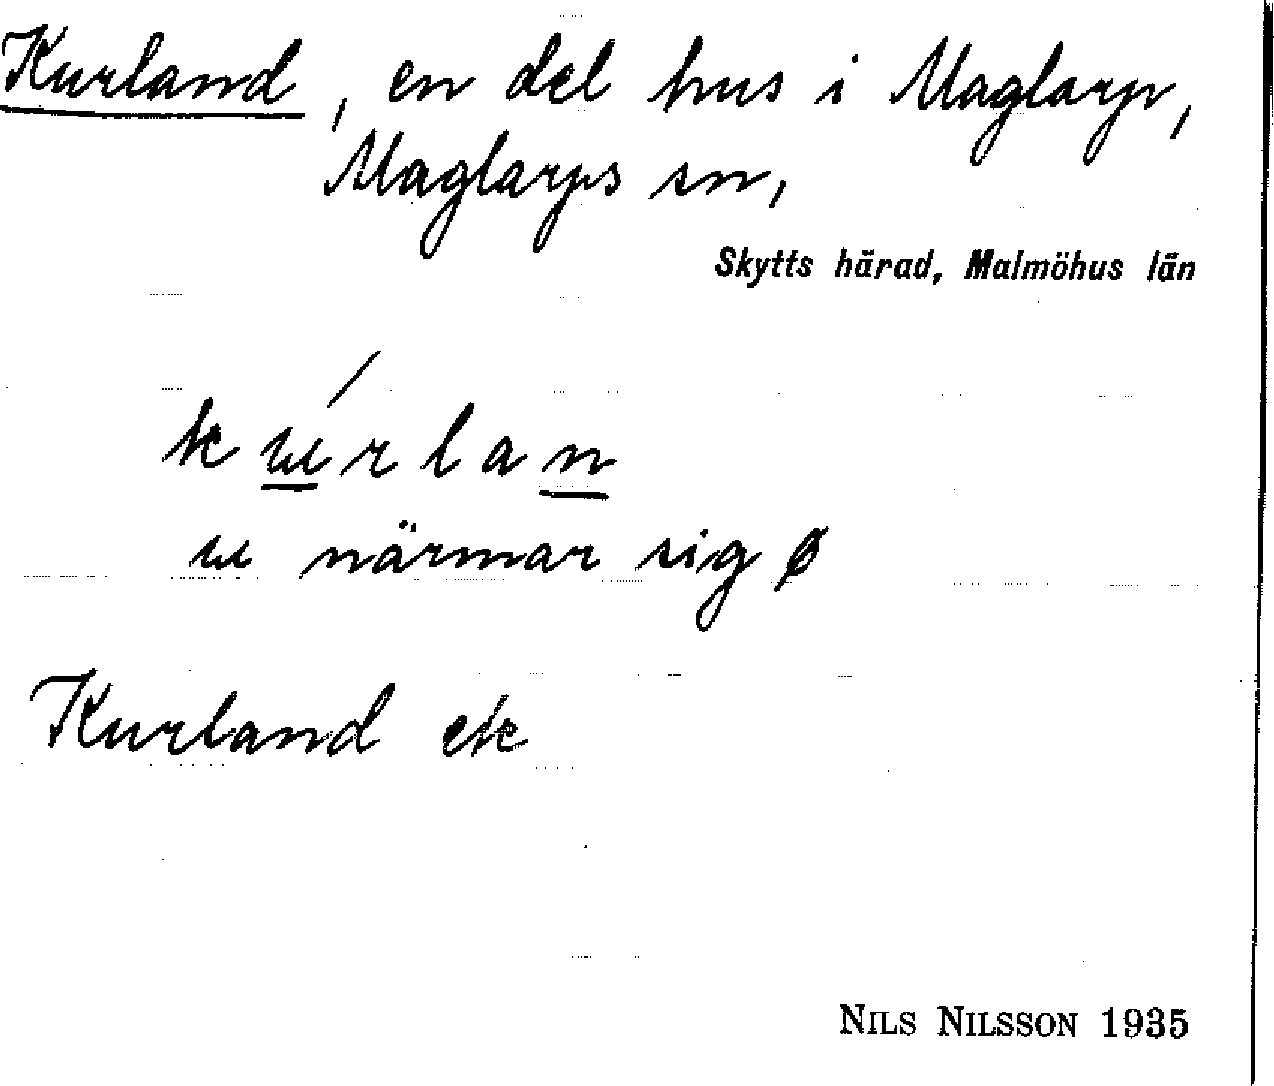 Kurland, en del hus i Maglarp,
Maglarps sn,
Skytts härad, Malmöhus län
kúrlan
u närmar sig ø
Kurland ek
NILS NILSSON 1935